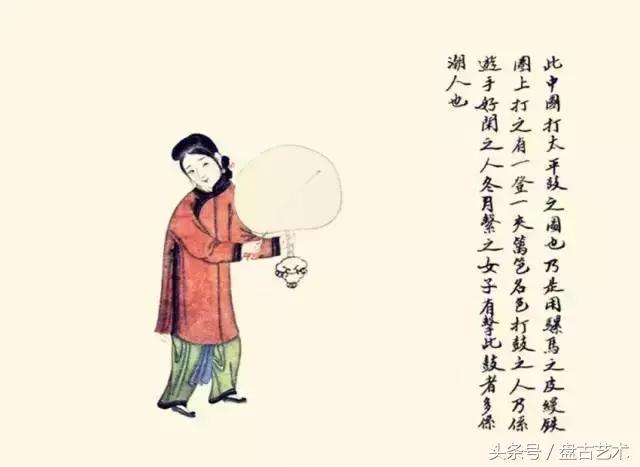 此中國打太平鼓之圖也乃是用騾馬之皮縵鉄
圈上打之有一登一夫萬笆名色打鼓之人乃係
遊手好閑之人冬月擊之女子有擊此鼓者多係
潮人也
头条号 / 盘古艺术